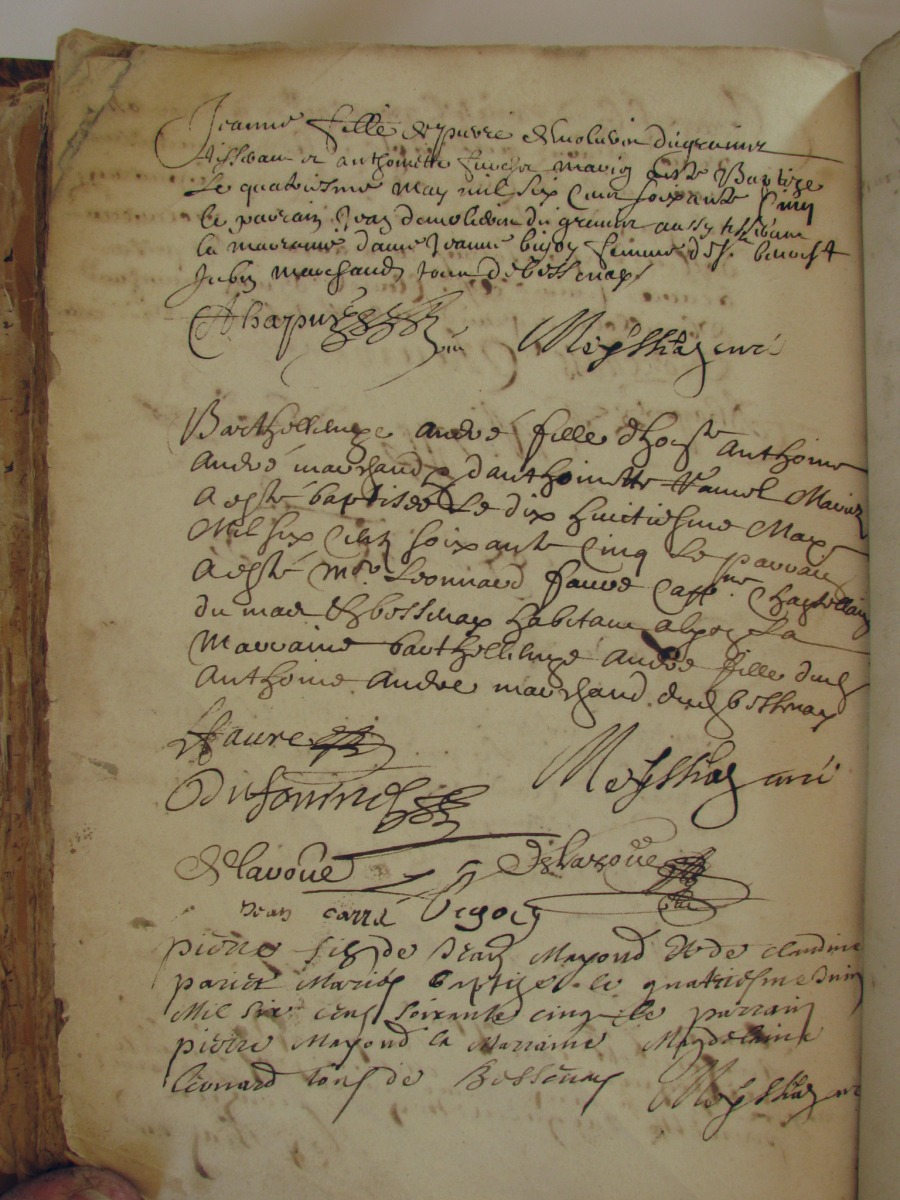 Jeanne fille de pierre demolievin du grenier
tisseran et anthoinette marie este Baptize
Le quatriesme may mil six cens soixante cinq
le parrain Jean demolievin du grenier aussy tisseran
la marraine dame Jeanne femme de Sr. benoist
marchand tous de bessenay
Chapuis Meysthas curé
Barthellemye André fille dhoste Anthoine
André marchand & danthoinette Mariez
A esté baptisée Le dix huictiesme May
Mil six Cens soixante Cinq Le parrain
A esté Mre Leonnard faure Cappne. Chastellain
du man de bessenay habitant La
Marraine barthellemye André fille dud
Anthoine André marchand dud bessenay
Faure
Meysthas curé
Delavoüe Delavoüe
Jean carra
pierre fils de Jean Mayond et de claudine
Mariés baptizé le quatriesme Juin
Mil six cens soixante cinq le parrain
pierre Mayond la Marraine Magdelaine
léonard tous de Bessenay
Meysthas